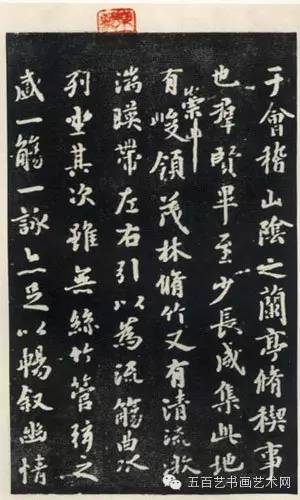 于會稽山陰之蘭亭脩稧事
也羣賢畢至少長咸集此地
有崇山峻領茂林脩竹又有清流激
湍暎帶左右引以為流觴曲水
列坐其次雖無絲竹管弦之
盛一觴一詠亦足以暢叙幽情
五百艺书画艺术网